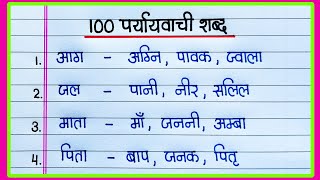 100 पर्यायवाची शब्द
1. आग - अग्नि, पावक, ज्वाला
2. जल - पानी, नीर, सलिल
3. माता - माँ, जननी, अम्बा
4. पिता - बाप, जनक, पितृ